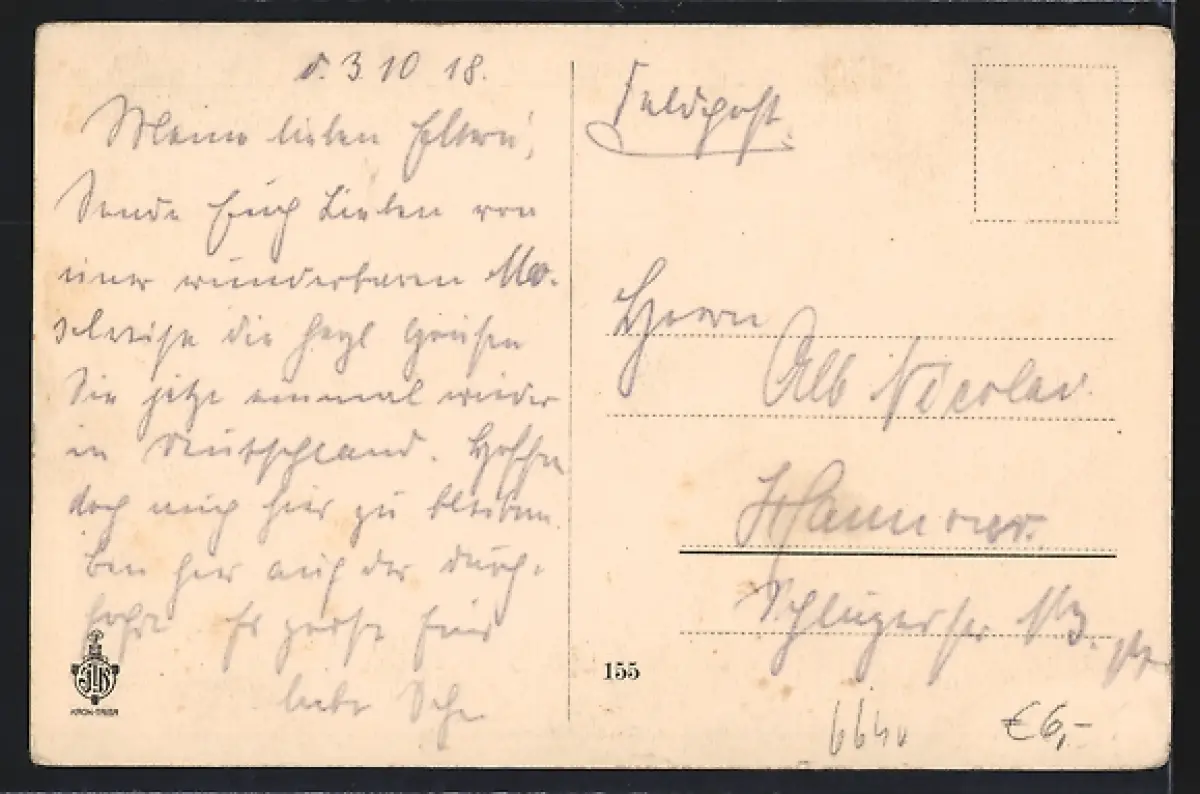 d. 3 10 18.
Meine lieben Eltern!
Sende Euch Lieben von
einer wunderbaren Mo-
selreise die herzl Grüsse
Bin jetzt einmal wieder
in Deutschland. Hoffe
doch auch hier zu bleiben.
Bin hier auf der Durch-
fahrt Es grüsst Euer
lieber
KRON-TRIER
Feldpost.
Herrn
Alb Nicolai.
Hannover.
155
6640
€6,-